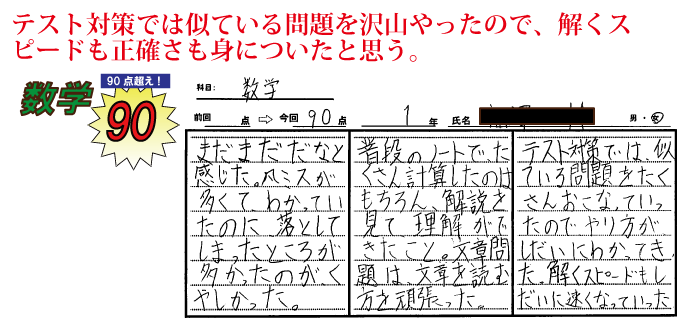 テスト対策では似ている問題を沢山やったので、解くス
ピードも正確さも身についたと思う。
数学
90点超え！
90
科目： 数学
前回 点 ⇨ 今回 90 点 1 年 氏名 男・女
まだまだだなと
感じた。凡ミスが
多くてわかってい
たのに落として
しまったところが
多かったのがく
やしかった。
普段のノートでた
くさん計算したのは
もちろん、解説を
見て理解がで
きたこと。文章問
題は、文章を読む
方を頑張った。
テスト対策では、似
ている問題をたく
さんおこなっていっ
たのでやり方が
しだいにわかってき
た。解くスピードもし
だいに速くなっていった